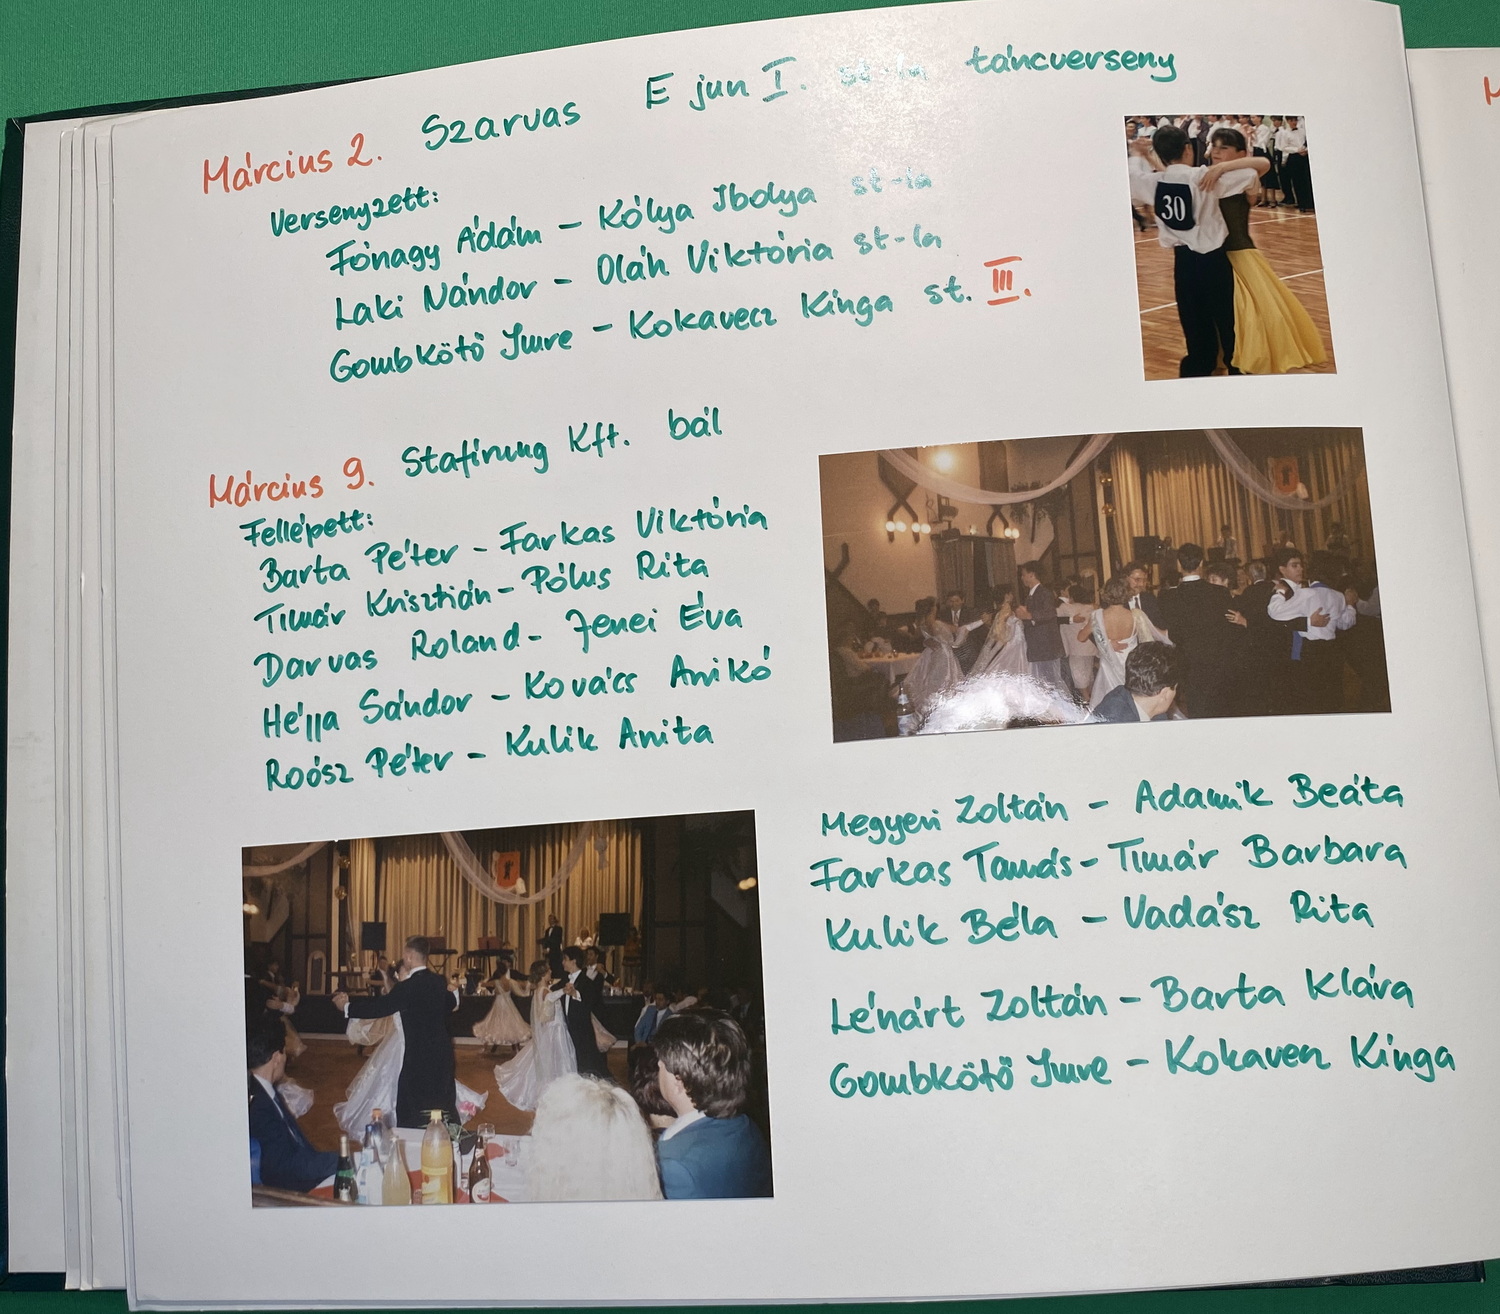 Március 2. Szarvas E jun I. st-la táncverseny
Versenyzett:
Fónagy Ádám – Kólya Ibolya st-la
Laki Nándor – Oláh Viktória st-la
Gombkötő Imre – Kokavecz Kinga st. III.
30
Március 9. Stafírung Kft. bál
Fellépett:
Barta Péter – Farkas Viktória
Tímár Krisztián – Pólus Rita
Darvas Roland – Jenei Éva
Héjja Sándor – Kovács Anikó
Roósz Péter – Kulik Anita
Megyeri Zoltán – Adamik Beáta
Farkas Tamás – Tímár Barbara
Kulik Béla – Vadász Rita
Lénárt Zoltán – Barta Klára
Gombkötő Imre – Kokavecz Kinga